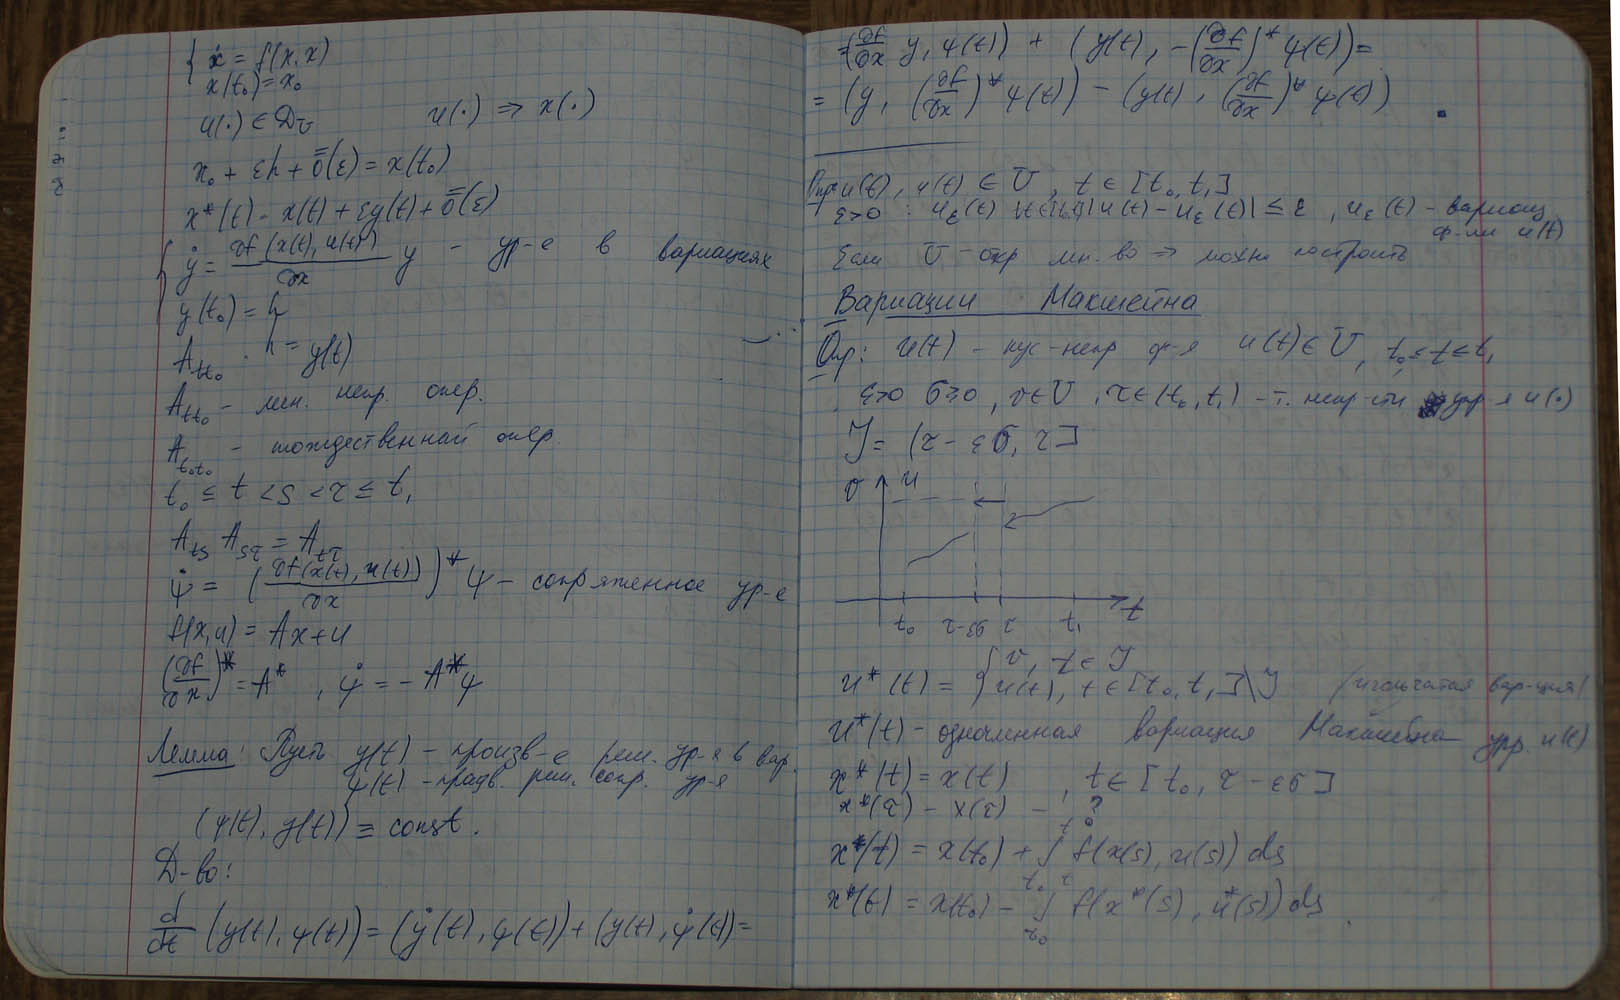 { ẋ = f(x, x)
x(t₀) = x₀
u(·) ∈ D_U u(·) ⇒ x(·)
x₀ + εh + o̿(ε) = x(t₀)
x*(t) - x(t) + εy(t) + o̿(ε)
{ ẏ = ∂f(x(t), u(t))/∂x y - ур-е в вариациях
y(t₀) = h
A_{tt₀} : h = y(t)
A_{tt₀} - лин. непр. опер.
A_{t₀t₀} - тождественный опер.
t₀ ≤ t < s < τ ≤ t₁
A_{ts} A_{sτ} = A_{tτ}
ψ̇ = (∂f(x(t), u(t))/∂x)* ψ - сопряженное ур-е
f(x, u) = Ax + u
(∂f/∂x)* = A* , ψ̇ = - A*ψ
Лемма: Пусть y(t) - произв-е реш. ур-я в вар.
ψ(t) - реш. сопр. ур-я
(ψ(t), y(t)) ≡ const.
Д-во:
d/dt (y(t), ψ(t)) = (ẏ(t), ψ(t)) + (y(t), ψ̇(t)) =
= (∂f/∂x y, ψ(t)) + (y(t), -(∂f/∂x)* ψ(t)) =
= (y, (∂f/∂x)* ψ(t)) - (y(t), (∂f/∂x)* ψ(t))
u(t), u(t) ∈ U, t ∈ [t₀, t₁]
ε>0 : u_ε(t) |u(t) - u_ε(t)| ≤ ε, u_ε(t) - вариац.
ф-ии u(t)
Если U - откр мн-во ⇒ можно построить
Вариации Макшейна
Опр: u(t) - кус-непр ф-я u(t) ∈ U, t₀ ≤ t ≤ t₁
ε>0 σ≥0, v∈U, τ∈(t₀, t₁) - т. непр-сти упр-я u(·)
J = (τ - εσ, τ]
v u
t₀ τ-εσ τ t₁ t
u*(t) = { v, t ∈ J
u(t), t ∈ [t₀, t₁]\J (игольчатая вар-ция)
u*(t) - одночленная вариация Макшейна упр. u(t)
x*(t) = x(t) , t ∈ [t₀, τ - εσ]
x*(τ) - x(τ) - ?
x*(t) = x(t₀) + ∫_{t₀}^{t} f(x(s), u(s)) ds
x*(t) = x(t₀) - ∫_{t₀}^{τ} f(x*(s), u*(s)) ds